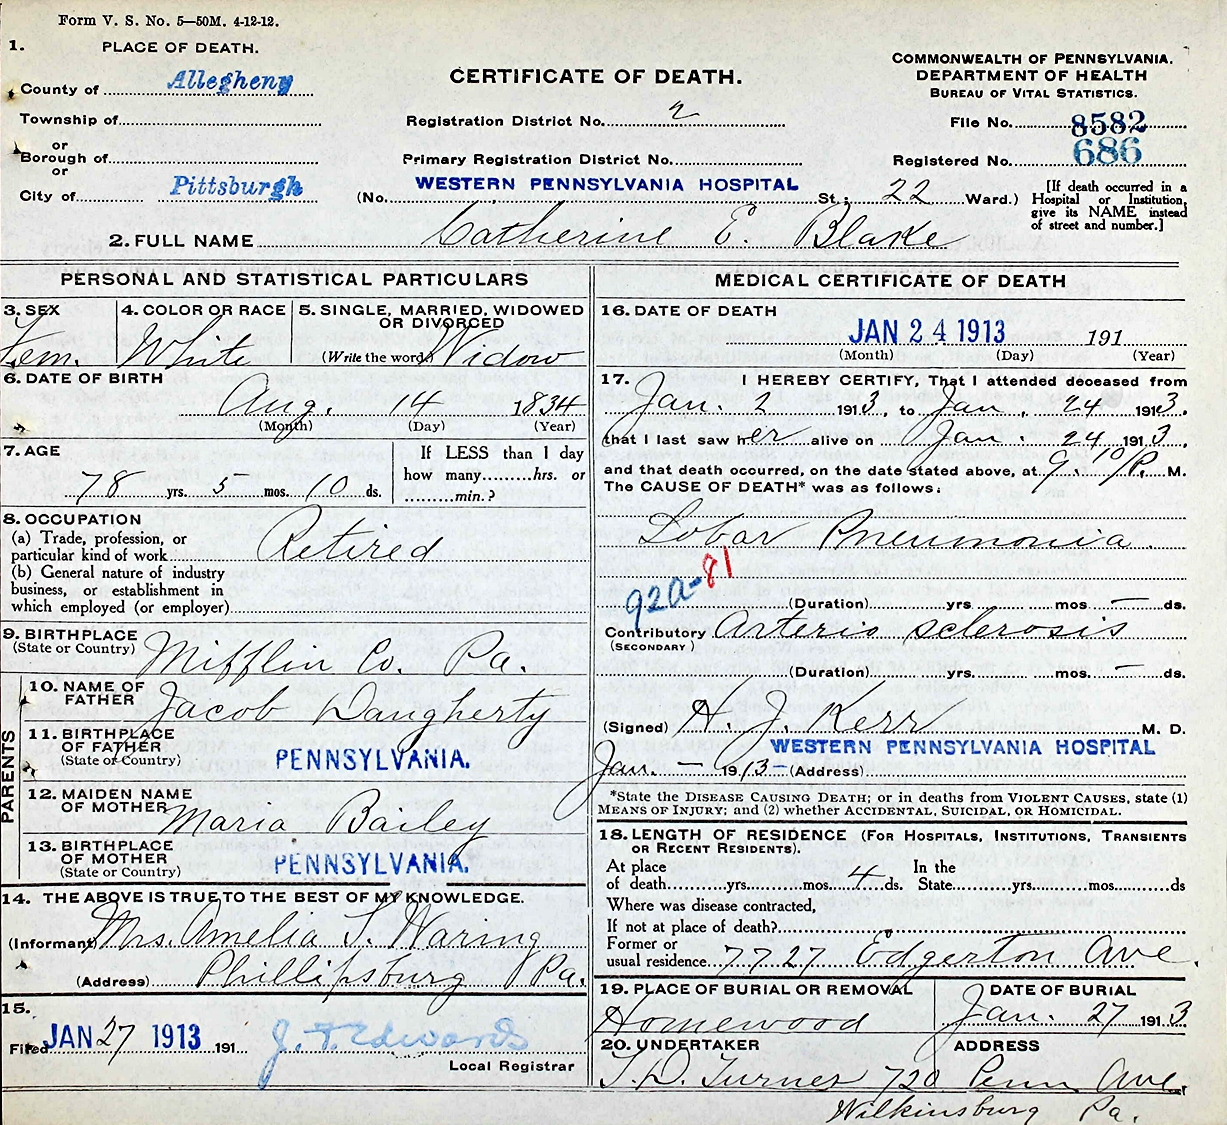 Form V. S. No. 5—50M. 4-12-12.
1. PLACE OF DEATH.
County of Allegheny
Township of
or
Borough of
or
City of Pittsburgh
CERTIFICATE OF DEATH.
Registration District No. 2
Primary Registration District No.
(No. WESTERN PENNSYLVANIA HOSPITAL St.; 22 Ward.)
COMMONWEALTH OF PENNSYLVANIA.
DEPARTMENT OF HEALTH
BUREAU OF VITAL STATISTICS.
File No. 8582
Registered No. 686
[If death occurred in a
Hospital or Institution,
give its NAME instead
of street and number.]
2. FULL NAME Catherine E. Blake
PERSONAL AND STATISTICAL PARTICULARS
3. SEX
Fem.
4. COLOR OR RACE
White
5. SINGLE, MARRIED, WIDOWED
OR DIVORCED
(Write the word) Widow
6. DATE OF BIRTH
Aug. 14 1834
(Month) (Day) (Year)
7. AGE
78 yrs. 5 mos. 10 ds.
If LESS than 1 day
how many hrs. or
min.?
8. OCCUPATION
(a) Trade, profession, or
particular kind of work
Retired
(b) General nature of industry
business, or establishment in
which employed (or employer)
9. BIRTHPLACE
(State or Country)
Mifflin Co. Pa.
PARENTS
10. NAME OF
FATHER
Jacob Daugherty
11. BIRTHPLACE
OF FATHER
(State or Country)
PENNSYLVANIA.
12. MAIDEN NAME
OF MOTHER
Maria Bailey
13. BIRTHPLACE
OF MOTHER
(State or Country)
PENNSYLVANIA.
14. THE ABOVE IS TRUE TO THE BEST OF MY KNOWLEDGE.
(Informant) Mrs. Amelia S. Waring
(Address) Phillipsburg Pa.
15.
Filed JAN 27 1913 191 J. F. Edwards
Local Registrar
MEDICAL CERTIFICATE OF DEATH
16. DATE OF DEATH
JAN 24 1913 191
(Month) (Day) (Year)
17. I HEREBY CERTIFY, That I attended deceased from
Jan. 2 1913, to Jan. 24 1913.
that I last saw her alive on Jan. 24 1913.
and that death occurred, on the date stated above, at 9.10 P. M.
The CAUSE OF DEATH* was as follows:
Lobar Pneumonia.
92a-81
(Duration) yrs. mos. — ds.
Contributory Arterio sclerosis
(SECONDARY)
(Duration) yrs. mos. — ds.
(Signed) H. J. Kerr M. D.
WESTERN PENNSYLVANIA HOSPITAL
Jan. — 1913 — (Address)
*State the DISEASE CAUSING DEATH; or in deaths from VIOLENT CAUSES, state (1)
MEANS OF INJURY; and (2) whether ACCIDENTAL, SUICIDAL, OR HOMICIDAL.
18. LENGTH OF RESIDENCE (FOR HOSPITALS, INSTITUTIONS, TRANSIENTS
OR RECENT RESIDENTS).
At place
of death yrs. mos. 4 ds.
In the
State yrs. mos. ds
Where was disease contracted,
If not at place of death?
Former or
usual residence 7727 Edgerton Ave.
19. PLACE OF BURIAL OR REMOVAL
Homewood
DATE OF BURIAL
Jan. 27 1913
20. UNDERTAKER
ADDRESS
T. D. Turner 720 Penn Ave,
Wilkinsburg Pa.